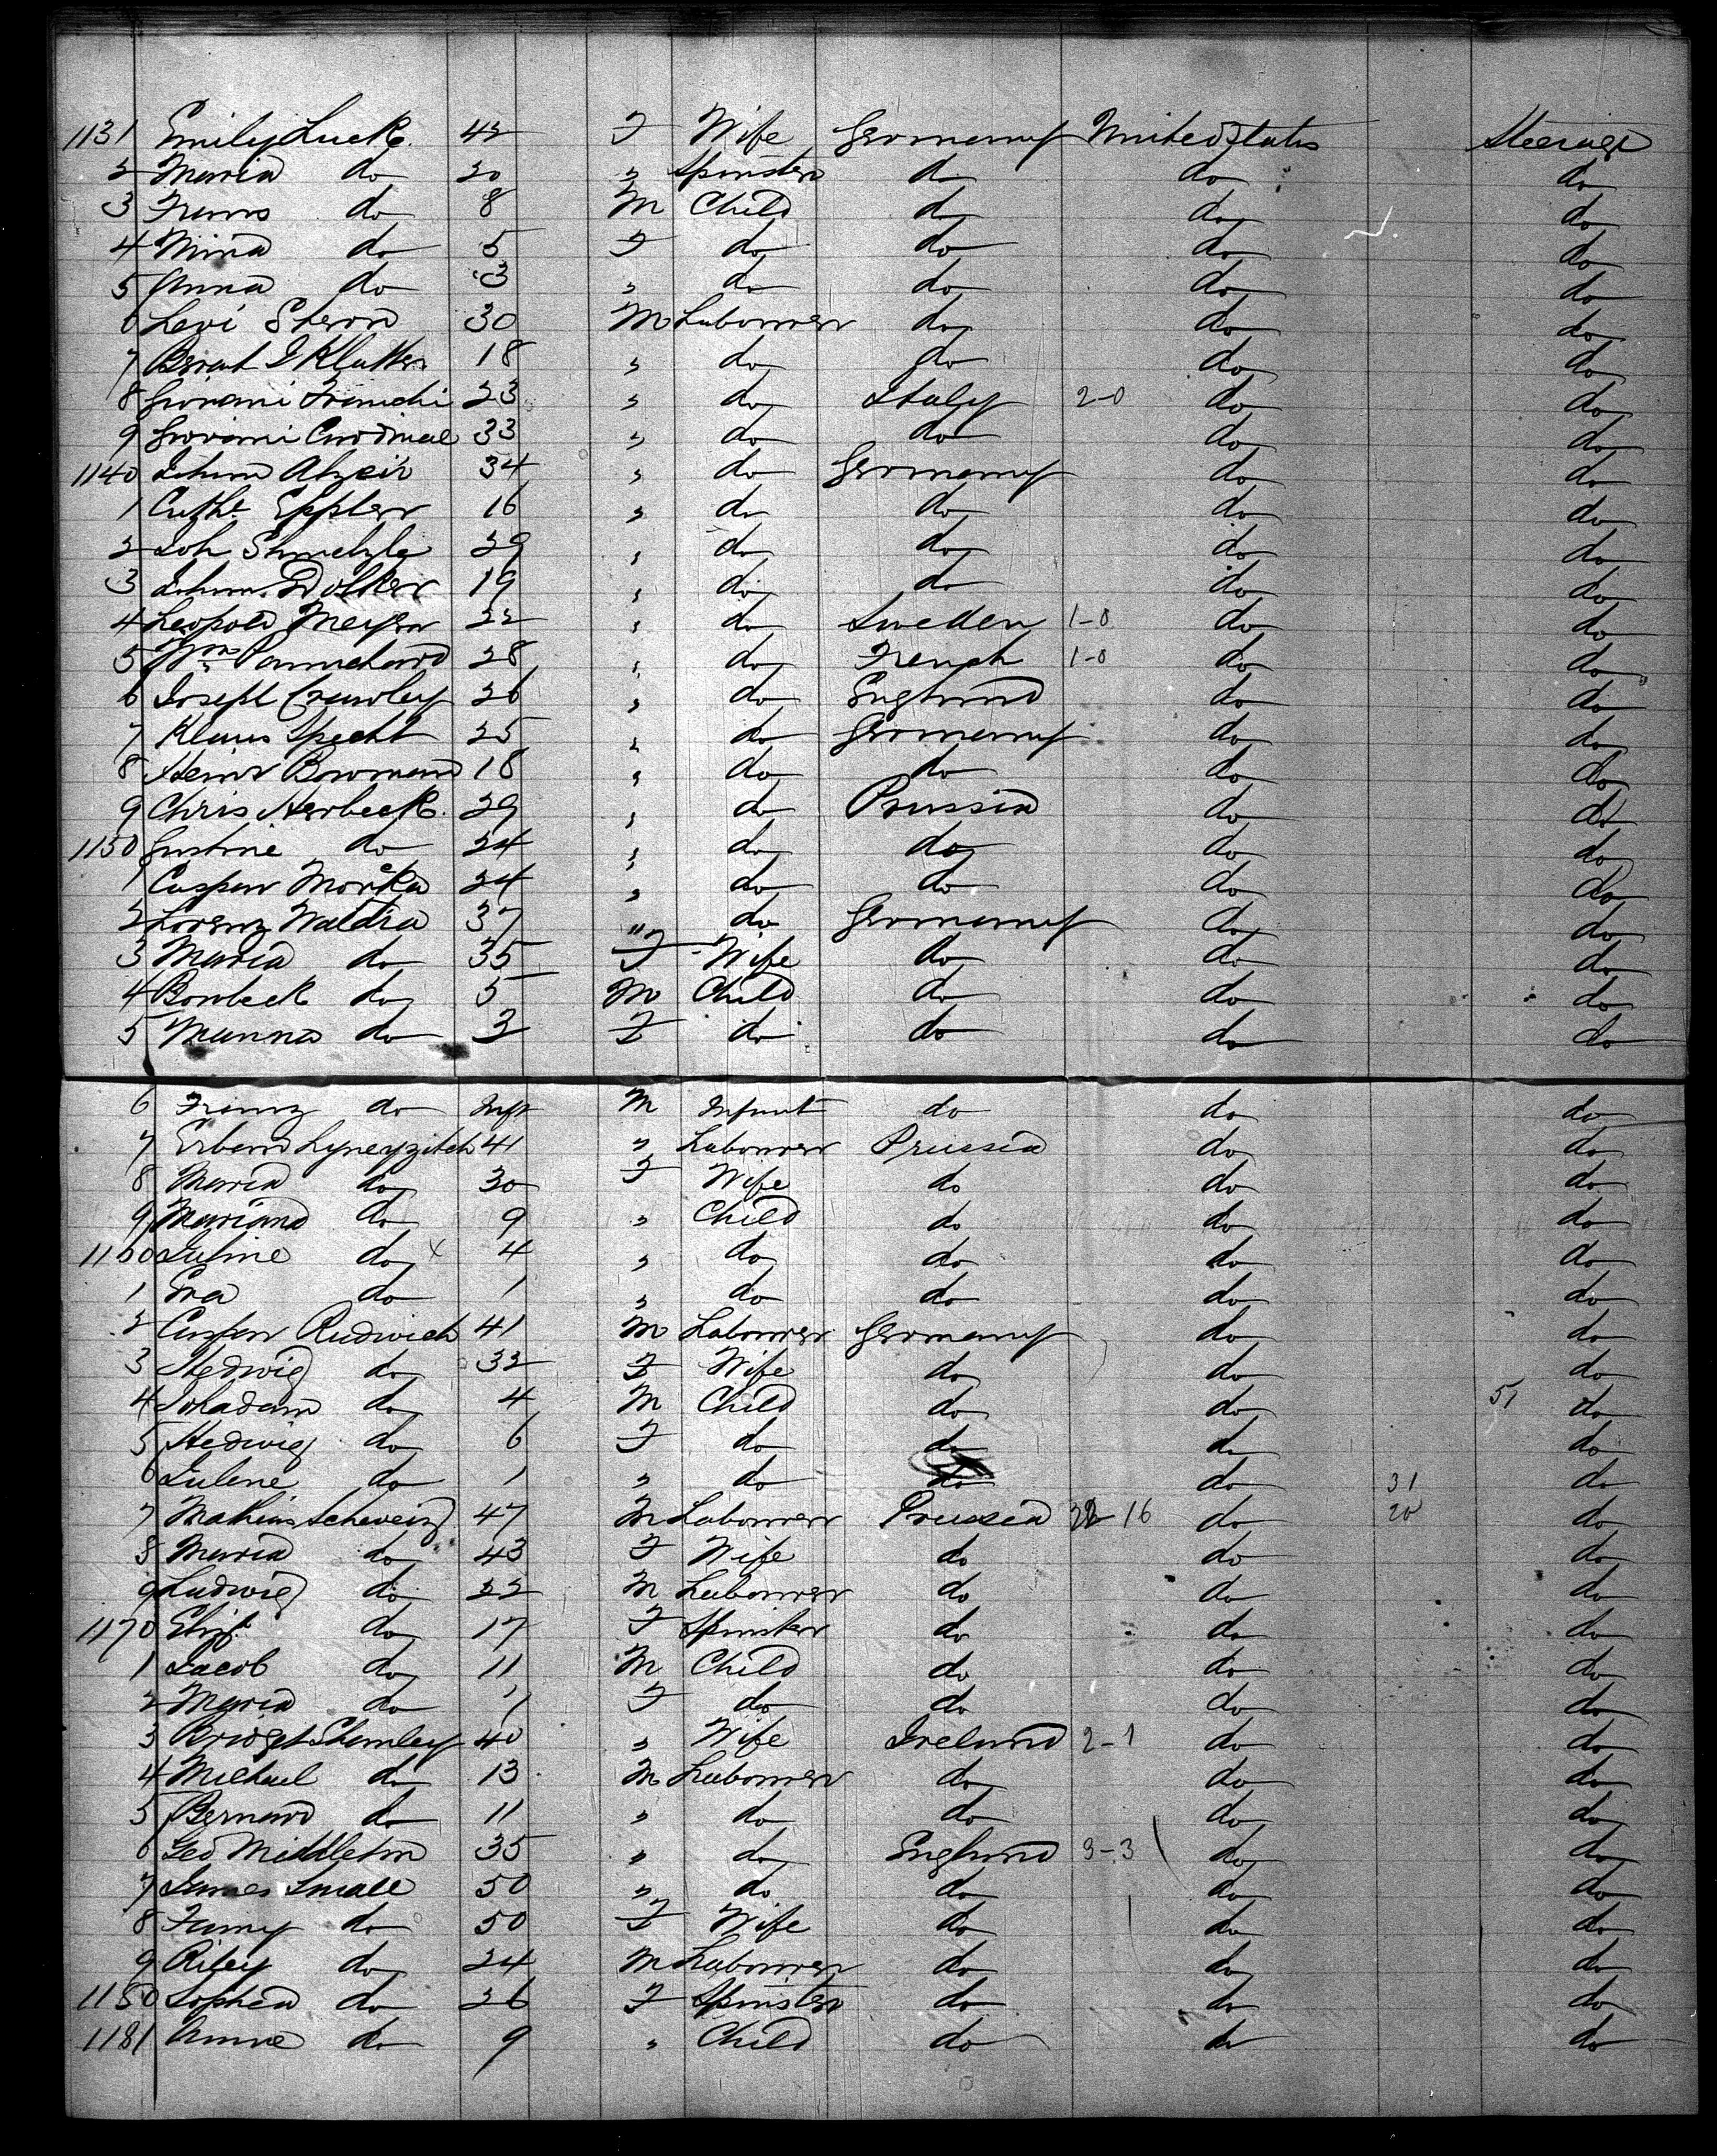 1131 Emily Luck 42 F Wife Germany United States Steerage
2 Maria do 20 " Spinster do do do
3 Frans do 8 M Child do do do
4 Mina do 5 F do do do do
5 Anna do 3 " do do do do
6 Levi Stern 30 M Labourer do do do
7 18 " do do do do
8 Giovani Franchi 23 " do Italy 2-0 do do
9 Giovani Cardinal 33 " do do do do
1140 34 " do Germany do do
1 Cathe Eppler 16 " do do do do
2 Joh Shmelzle 29 " do do do do
3 19 " do do do do
4 Leopold Meyer 22 " do Sweden 1-0 do do
5 Wm 28 " do French 1-0 do do
6 Joseph Crawley 26 " do England do do
7 Klaus Specht 25 " do Germany do do
8 Heinr Bowmann 18 " do do do do
9 Chris Herbeck 29 " do Prussia do do
1150 Justine do 24 " do do do do
1 Casper 24 " do do do do
2 Lorenz Waldra 37 " do Germany do do
3 Maria do 35 F Wife do do do
4 do 5 M Child do do do
5 Manna do 3 F do do do do
6 Franz do Inft M Infant do do do
7 41 " Labourer Prussia do do
8 Maria do 30 F Wife do do do
9 Mariana do 9 " Child do do do
1160 do x 4 " do do do do
1 Eva do 1 " do do do do
2 Casper Rudwich 41 M Labourer Germany do do
3 Hedwig do 32 F Wife do do do
4 Johadam do 4 M Child do do 51 do
5 Hedwig do 6 F do do do do
6 Julene do 1 " do do do 31 do
7 Mathias Scheveiz 47 M Labourer Prussia 16 do 20 do
8 Maria do 43 F Wife do do do
9 Ludwig do 22 M Labourer do do do
1170 Eliz do 17 F Spinster do do do
1 Jacob do 11 M Child do do do
2 Maria do F do do do do
3 Bridget Shemley 40 " Wife Ireland 2-1 do do
4 Michael do 13 M Labourer do do do
5 Bernard do 11 " do do do do
6 Geo Middleton 35 " do England 3-3 do do
7 James Small 50 " do do do do
8 Fanny do 50 F Wife do do do
9 Riley do 24 M Labourer do do do
1180 Sophia do 26 F Spinster do do do
1181 Anne do 9 " Child do do do